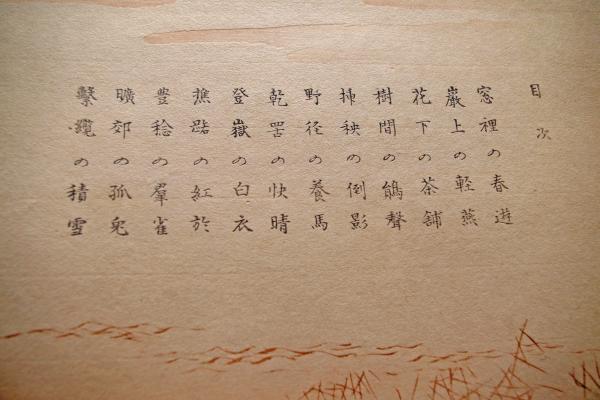 目次
窓裡の春遊
巌上の軽燕
花下の茶舗
樹間の鵃聲
挿秧の倒影
野径の養馬
乾罟の快晴
登嶽の白衣
樵路の紅於
豊稔の羣雀
曠郊の孤兎
繋纜の積雪